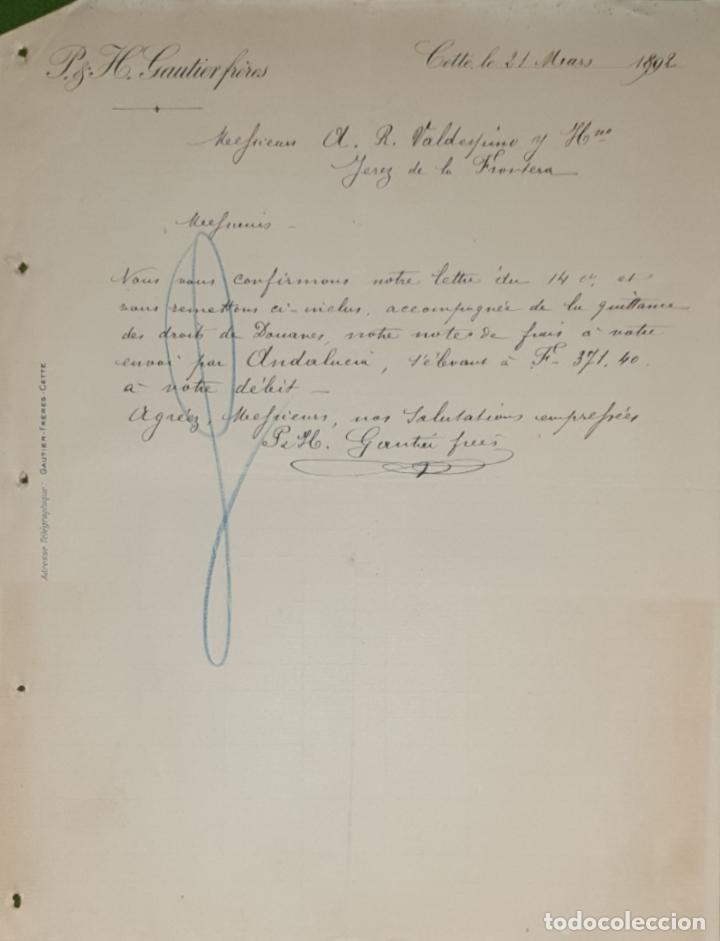 P. & H. Gautier frères
Cette, le 21 Mars 1892
Messieurs A. R. Valdespino y Hno
Jerez de la Frontera
Messieurs
Nous vous confirmons notre lettre du 14 ct, et
vous remettons ci-inclus, accompagnée de la quittance
des droits de Douanes, notre note de frais à votre
envoi par Andalucia, s'élevant à F- 371.40.
à votre débit —
Agréez, Messieurs, nos Salutations empressées
P & H. Gautier freres
Adresse Télégraphique: GAUTIER-FRÈRES-CETTE
todocoleccion